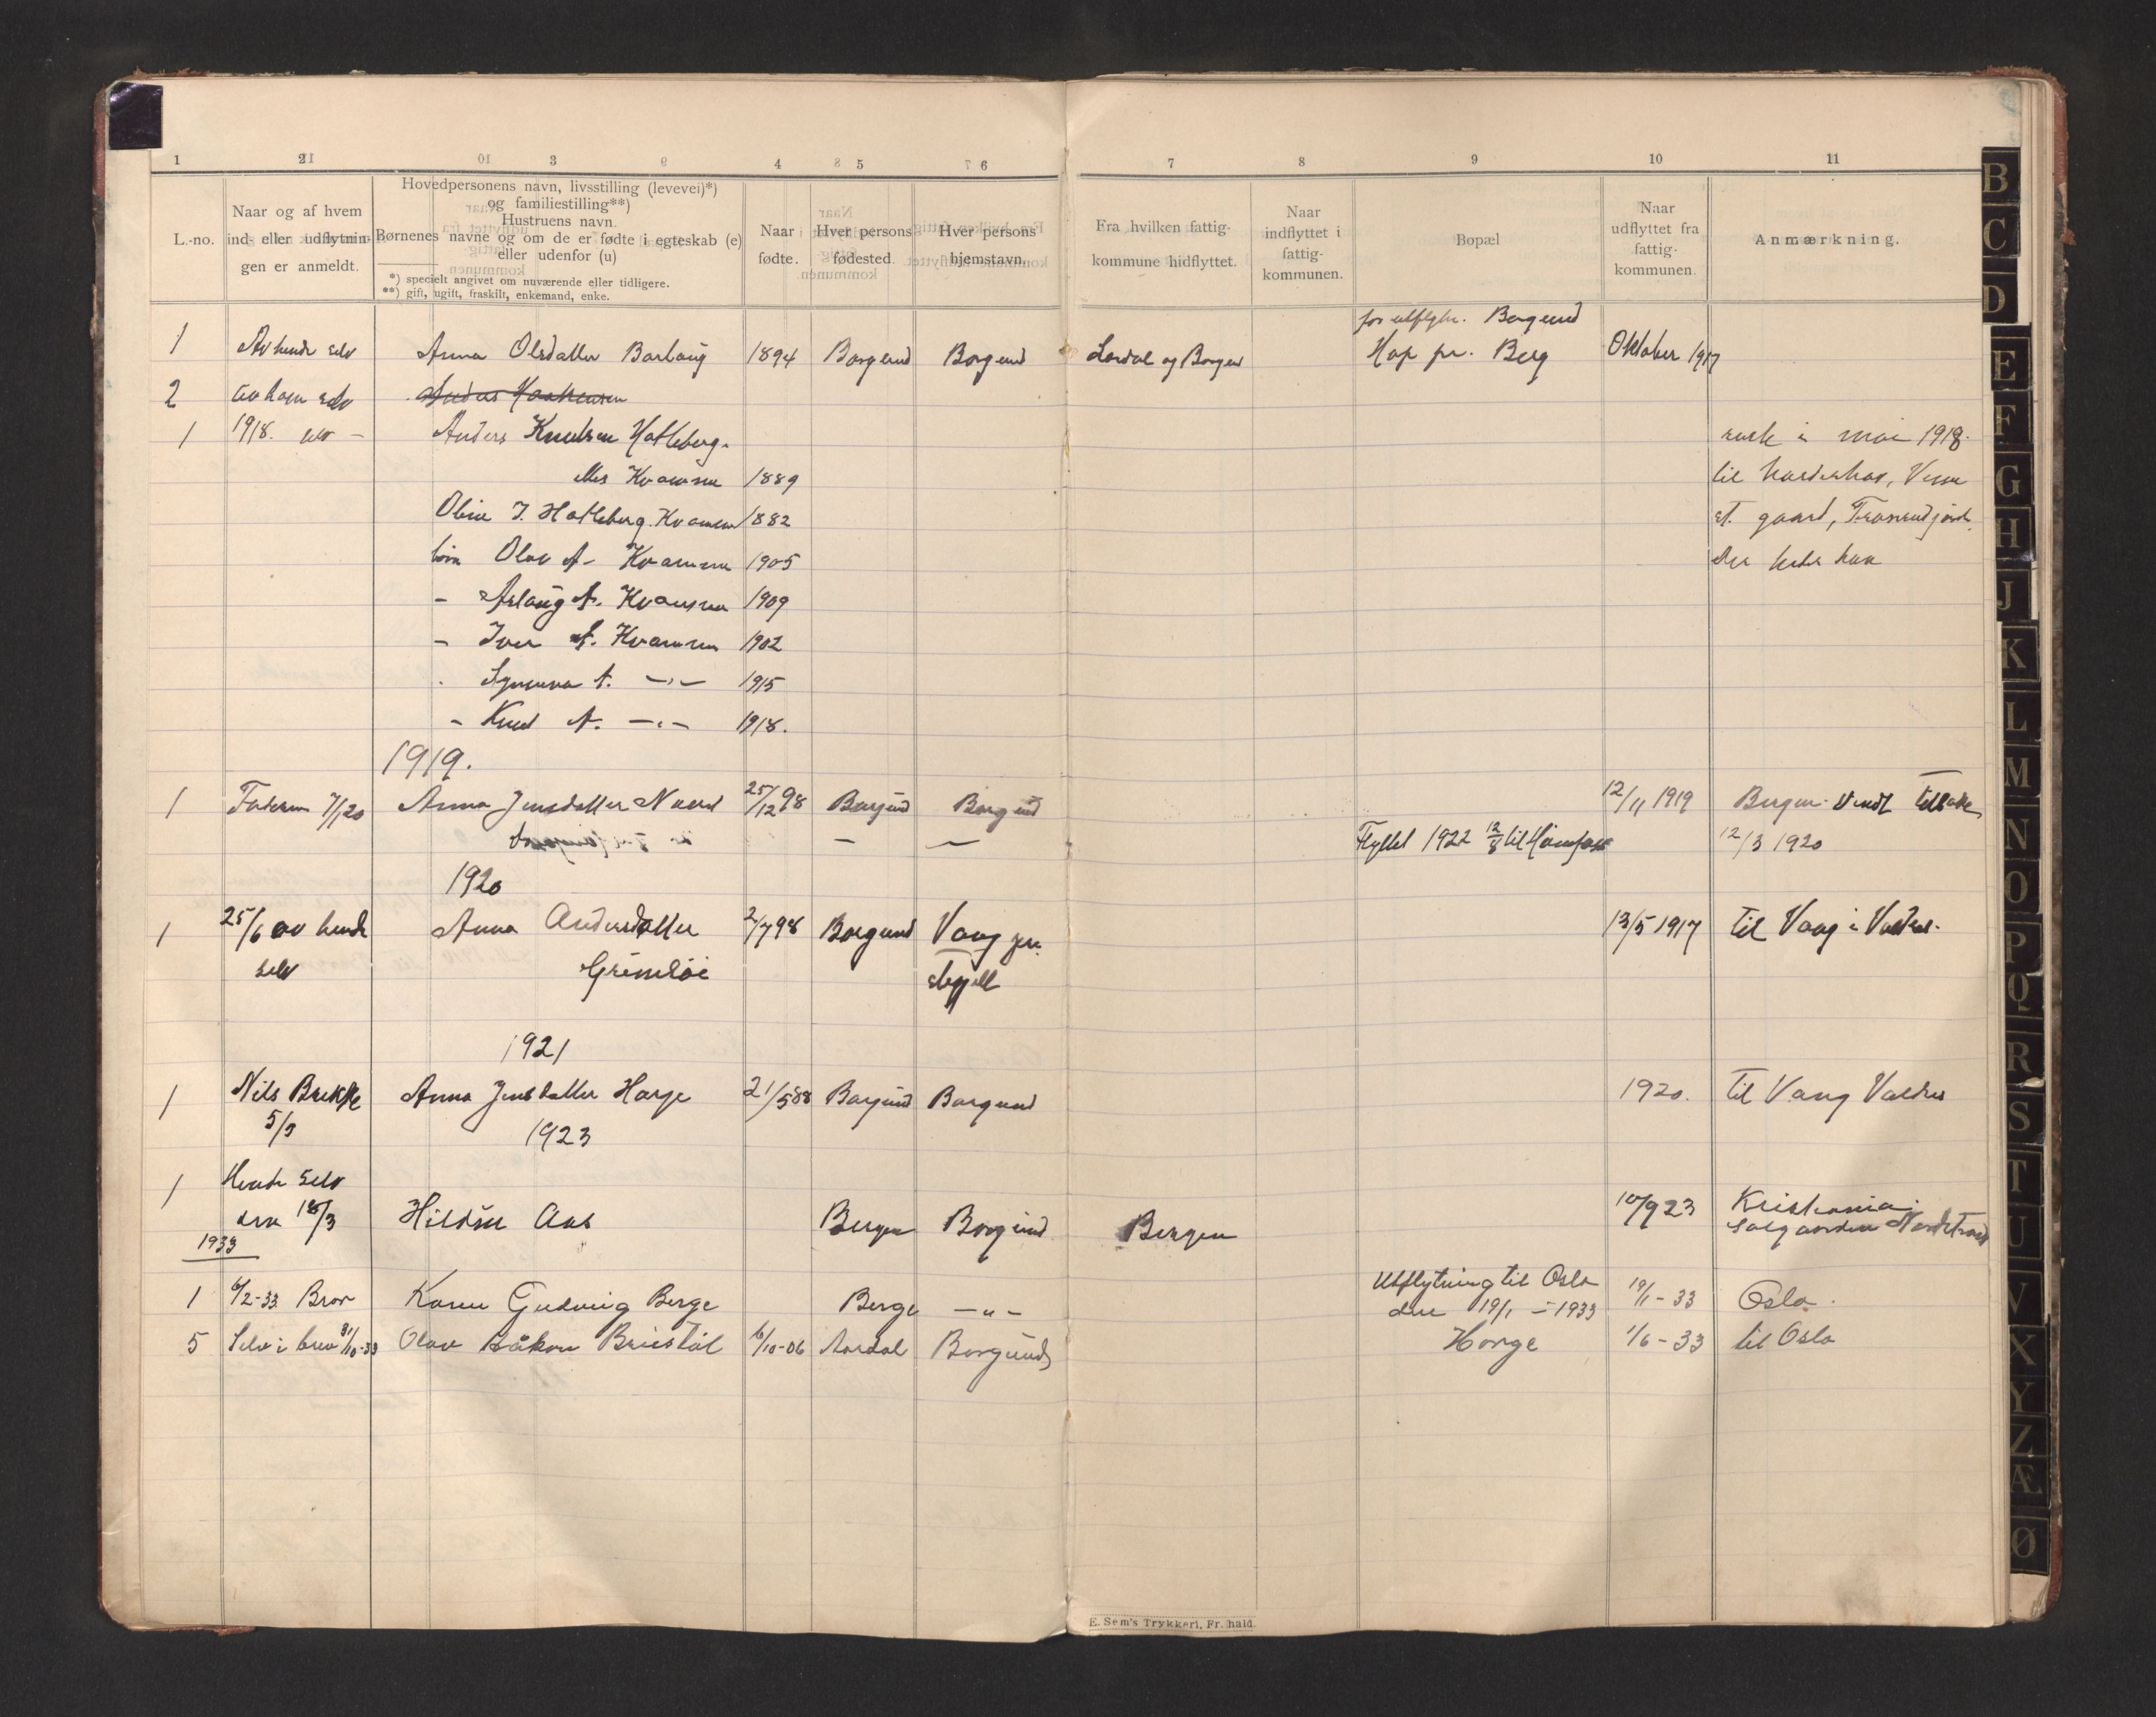 1 2 3 4 5 6 7 8 9 10 11
L.-no.
Naar og af hvem
ind- eller udflytnin-
gen er anmeldt.
Hovedpersonens navn, livsstilling (levevei)*)
og familiestilling**)
Hustruens navn.
Børnenes navne og om de er fødte i egteskab (e)
eller udenfor (u)
*) specielt angivet om nuværende eller tidligere.
**) gift, ugift, fraskilt, enkemand, enke.
Naar
fødte.
Hver persons
fødested.
Hver persons
hjemstavn.
Fra hvilken fattig-
kommune hidflyttet.
Naar
indflyttet i
fattig-
kommunen.
Bopæl
Naar
udflyttet fra
fattig-
kommunen.
Anmærkning.
Borgund
1 Av hende selv Anna Olsdatter 1894 Borgund Borgund Hop pr. Berg Oktober 1917
2 av ham selv Anders
1 1918. selv - Anders Knudsen Hatleberg. mai 1918.
Kvamme 1889 til
Hatleberg. Kvamme 1882 gaard,
børn Olav A- Kvamme 1905
- Aslaug A. Kvamme 1909
- Iver A. Kvamme 1902
Synneva A. -"- 1915
- Knud A. -"- 1918.
1919.
1 Faderen 7/1 20 Anna Jensdatter 25/12 98 Borgund Borgund 12/11 1919 Bergen. Vendt tilbake
- - Flyttet 1922 12/8 til 12/3 1920
1920
1 25/6 av hende Anna Andersdatter 2/7 98 Borgund Vang 13/5 1917 til Vang i Valdres.
selv Grimsøi
1921
1 Nils Brekke Anna Jensdatter Horge 21/5 88 Borgund Borgund 1920. til Vang Valdres
5/3
1923
1 Hende selv
18/3 Aas Bergen Borgund Bergen 10/9 23 Kristiania
1933
1 6/2-33 Bror Karen Gudveig Berge Berge -"- Utflytning til Oslo 19/1-33 Oslo.
den 19/1 - 1933
5 Selv i brev 31/10-33 Olav Håkon 6/10-06 Aardal Borgund Horge 1/6-33 til Oslo
E. Sem's Trykkeri, Fr.hald.
B
C
D
E
F
G
H
J
K
L
M
N
O
P
Q
R
S
T
U
V
X
Y
Z
Æ
Ø